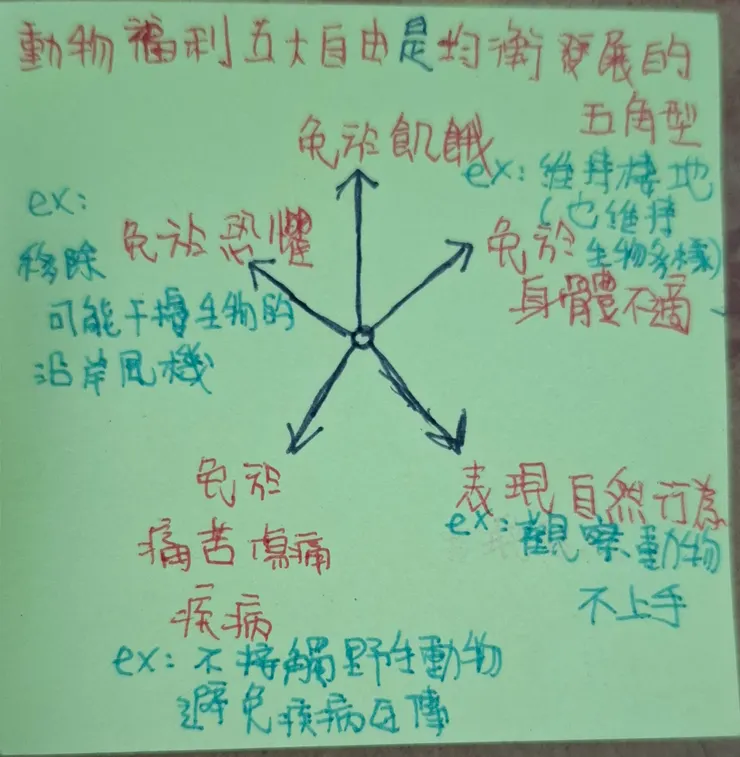 動物福利五大自由是均衡發展的
五角型
免於飢餓
ex: 維持棲地
(也維持
生物多樣)
免於
身體不適
ex:
移除
可能干擾生物的
沿岸風機
免於恐懼
免於
痛苦傷痛
疾病
ex: 不接觸野生動物
避免疾病互傳
表現自然行為
ex: 觀察動物
不上手